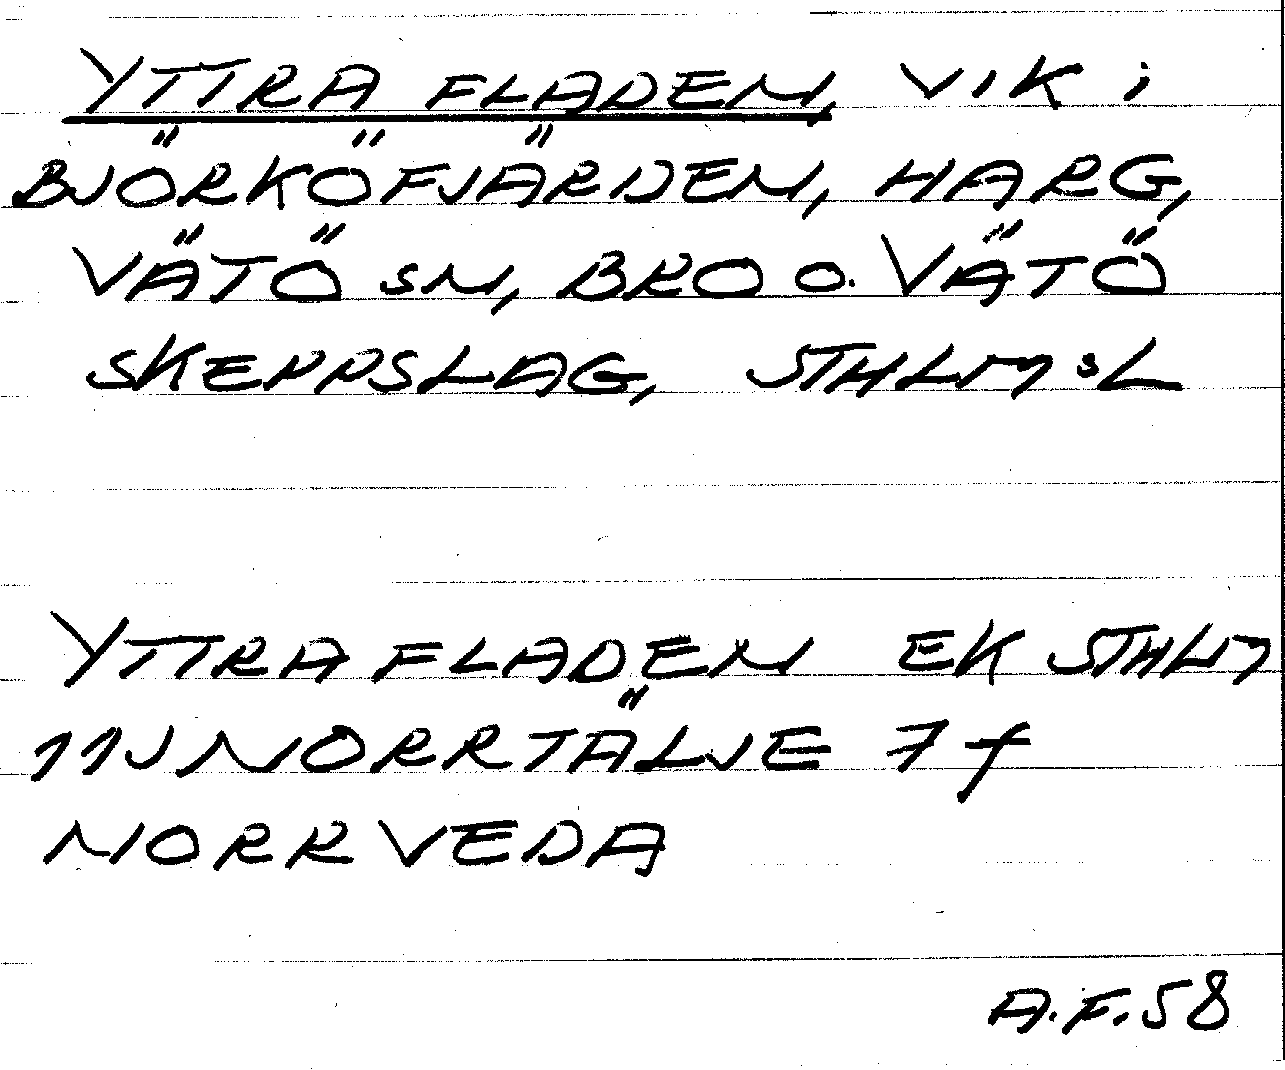 YTTRA FLADEN, VIK i
BJÖRKÖFJÄRDEN, HARG,
VÄTÖ SN, BRO O. VÄTÖ
SKEPPSLAG, STHLM:S L
YTTRA FLADEN EK STHLM
11J NORRTÄLJE 7f
NORRVEDA
A.F. 58